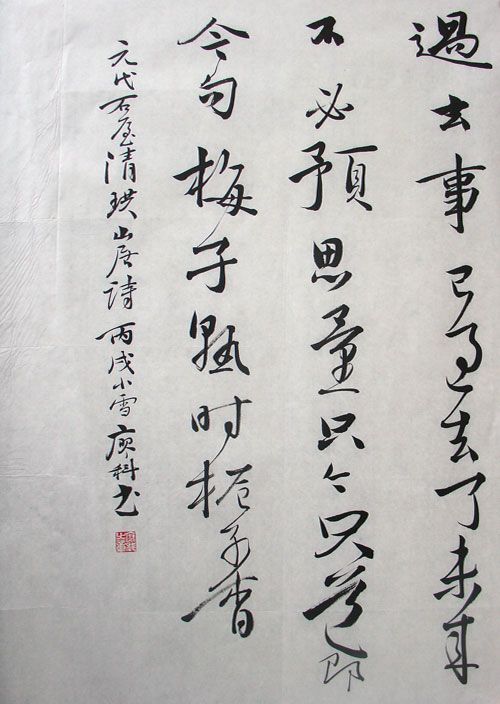 過去事已过去了未来
不必預思量只今只道即
今句梅子熟时栀子香
元代石屋清珙山居詩丙戌小雪廖科书